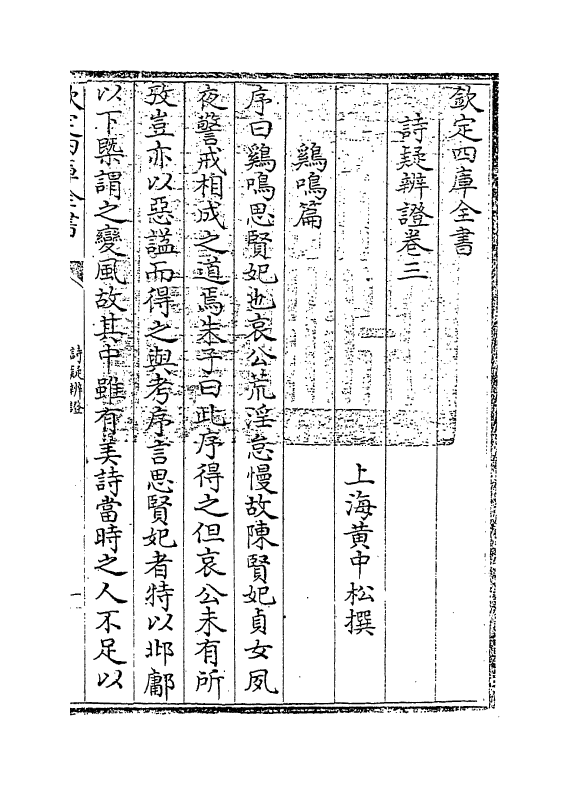 欽定四庫全書
詩疑辨證卷三
上海黃中松撰
鷄鳴篇
序曰鷄鳴思賢妃也哀公荒淫怠慢故陳賢妃貞女夙
夜警戒相成之道焉朱子曰此序得之但哀公未有所
攷豈亦以惡謚而得之與考序言思賢妃者特以邶鄘
以下槩謂之變風故其中雖有美詩當時之人不足以
欽定四庫全書
詩疑辨證
一